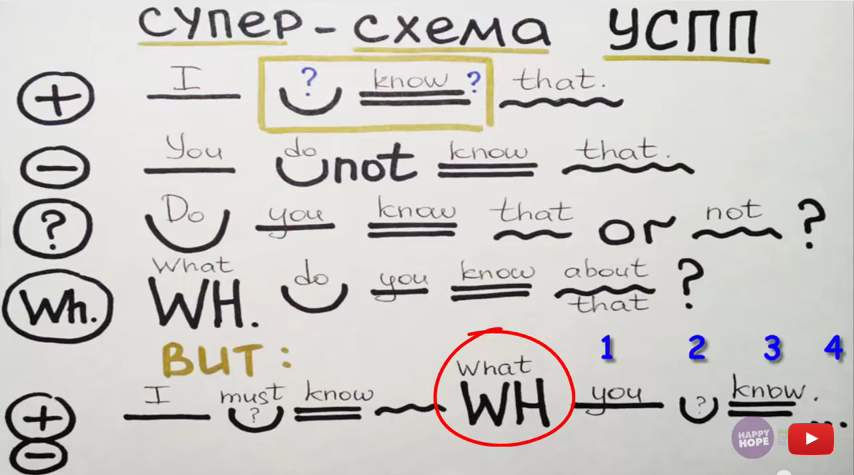 СУПЕР-СХЕМА УСПП
+ I ? know ? that.
- You do not know that.
? Do you know that or not ?
Wh. What WH. do you know about that ?
BUT:
1 2 3 4
+ - I must ? know What WH you ? know. ...
HAPPY HOPE